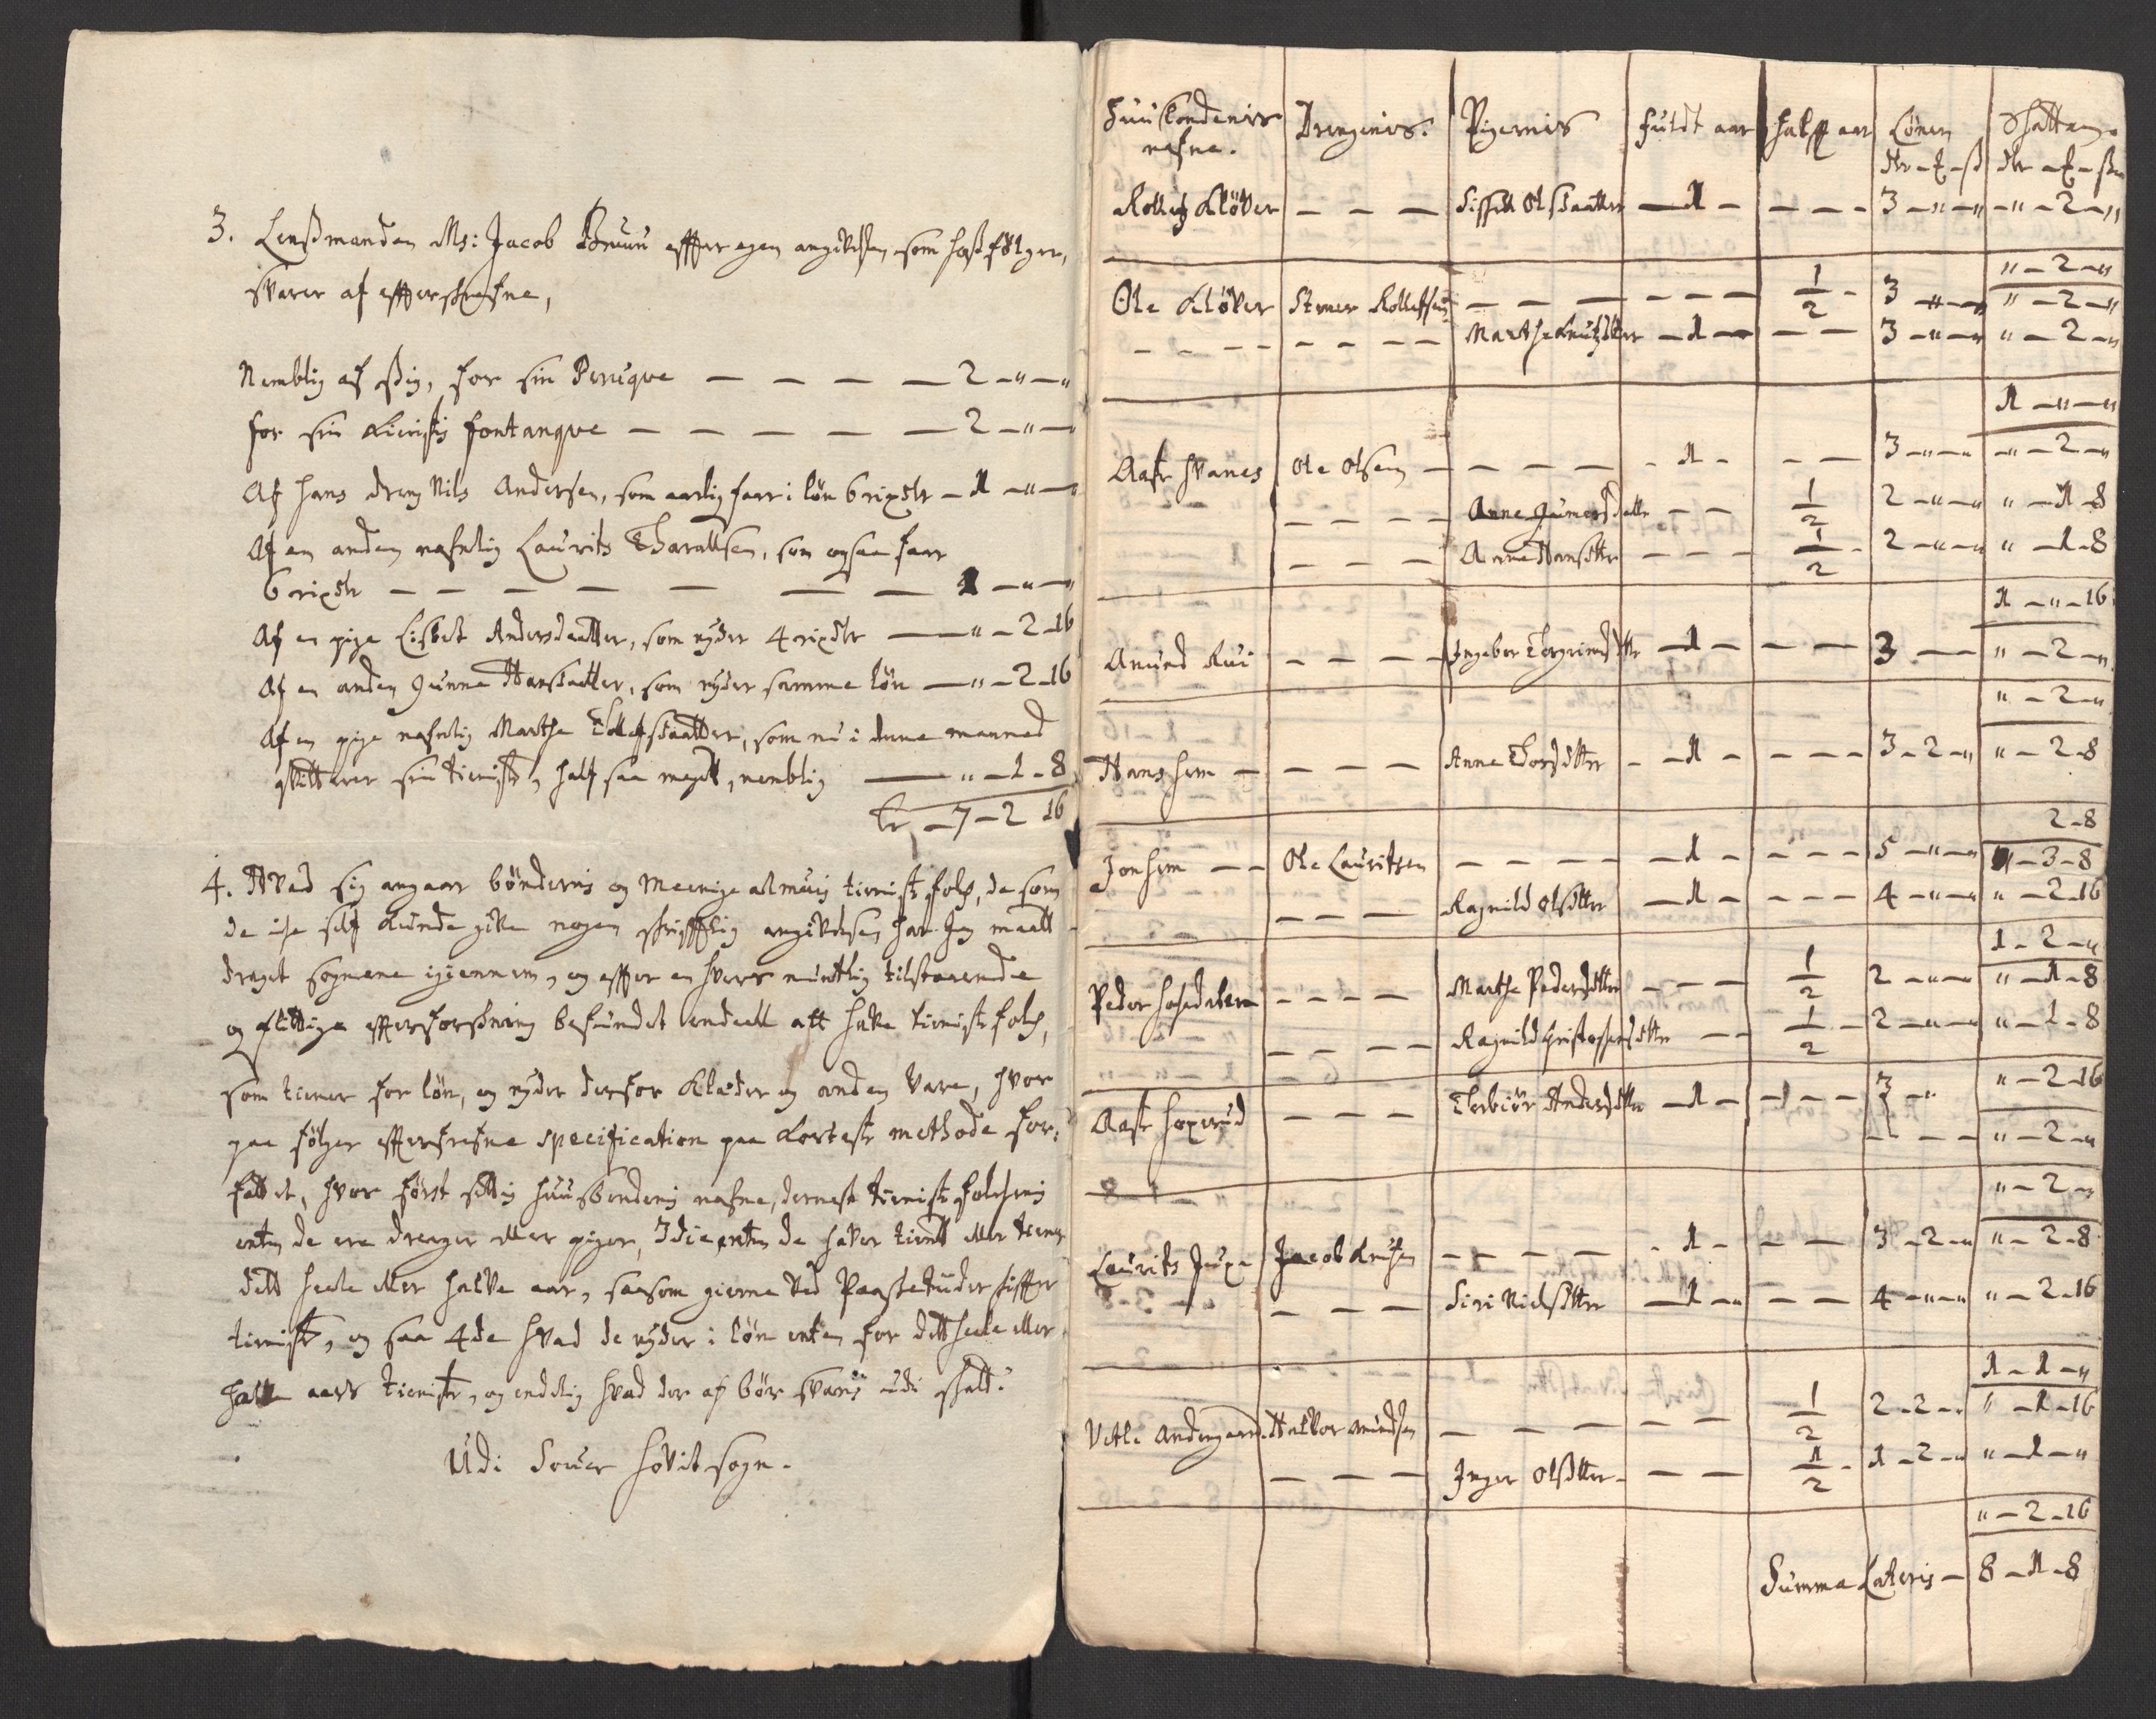 3. Lenßmanden Ms: Jacob Bruun effter egen angivelsen som hoßfölger,
svarer af effterskrefne,
Nemblig af ßig, for sin Peruqve — — — — 2 - " - "
for sin Kierists fontanqve — — — — — 2 - " - "
Af hans dreng Nils Andersen, som aarlig faar i lön 6 rixdlr - 1 - " - "
Af en anden nafnlig Laurits Tharaldsen, som ogsaa faar
6 rixdlr — — — — — — — 1 - " - "
Af en pige Lisbet Andersdaatter, som nyder 4 rixdlr — " - 2 - 16
Af en anden Gunne Hansdaatter, som nyder samme lön — " - 2 - 16
Af en pige nafnlig Marthe Tollefsdaatter, som nu i denne maaned
qvitterer sin tieniste, half saa megit, nemblig — " - 1 - 8
Er - 7 - 2 16
4. Hvad sig angaar bönderis og meenige almuis tienistefolch, da som
de iche self kunde give nogen skrifftlig angivelsen, har Jeg maatt
draget sognene igiennem, og effter en hvers mundtlig tilstaaende
og flittige effterforskning befundet endeell att have tienistefolch,
som tiener for lön, og nyder derfor klæder og anden vare, hvor
paa fölger effterskrefne specification paa korteste methode for:
fattet, hvor först settis huusbonderis nafne, dernest tienistefolchenis
enten de ere drenger eller piger, 3die enten de haver tient eller tiener
dett heele eller halve aar, saasom gierne ved Paasketider skiffter
tieniste, og saa 4de hvad de nyder i lön enten for dett heele eller
halve aars tieniste, og endelig hvad der af bör svaris udi skatt.
Udi Souer hovit sogn.
Huusbondenis nafne. | Drengenis. | Pigernis | fuldt aar | halft aar | Lönen dlr - £ - ß | Skatten dlr - £ - ß
Klöver — — — Sissell Olsdaatter — 1 - — — — 3 - " - " - " - 2 - "
" - 2 - "
Ole Klöver Stener Rollefsen — — — — — — 1/2 - 3 - " - " " - 2 - "
— — — — — — — Marthe Knutzdtter — 1 — — — 3 - " - " " - 2 - "
1 - " - "
Aase Svanes Ole Olsen — — — — - 1 - — — 3 - " - " " - 2 - "
— — — — Anne Gunersdatte — — 1/2 2 - " - " " - 1 - 8
— — — Anne Hansdtter — — — 1/2 - 2 - " - " " - 1 - 8
1 - " - 16
Amund Rui — — — — Ingebor Torgrimsdtter — 1 - — — — 3 — " - 2 - "
" - 2 - "
Hans hem — — — — — Anne Torsdtter - - 1 - — — — 3 - 2 - " " - 2 - 8
2 - 8
Jon hem — — Ole Lauritzen — — — — — 1 - — — — 5 - " - " " - 3 - 8
— — — Ragnild Olsdtter — 1 - — — — 4 - " - " " - 2 - 16
1 - 2 - "
Peder — — — — Marthe Pedersdtter — — — 1/2 2 - " - " " - 1 - 8
— — — — Ragnild Christophersdtter — — 1/2 - 2 - " - " " - 1 - 8
" - 2 - 16
Aase — — — Torbiör Andersdtter — 1 - — — — 3 - " — " - 2 - "
" - 2 - "
Laurits Juxe Jacob Knutsen — — — — - 1 - — — 3 - 2 - " " - 2 - 8
— — — Siri Nielsdtter — 1 - " — — 4 - " - " " - 2 - 16
1 - 1 - "
Vetle Andengaard. Halvor Amundsen — — — — — 1/2 2 - 2 - " " - 1 - 16
— — — Inger Olsdtter - — — 1/2 - 1 - 2 - " " - 1 - "
" - 2 - 16
Summa Lateris - 8 - 1 - 8